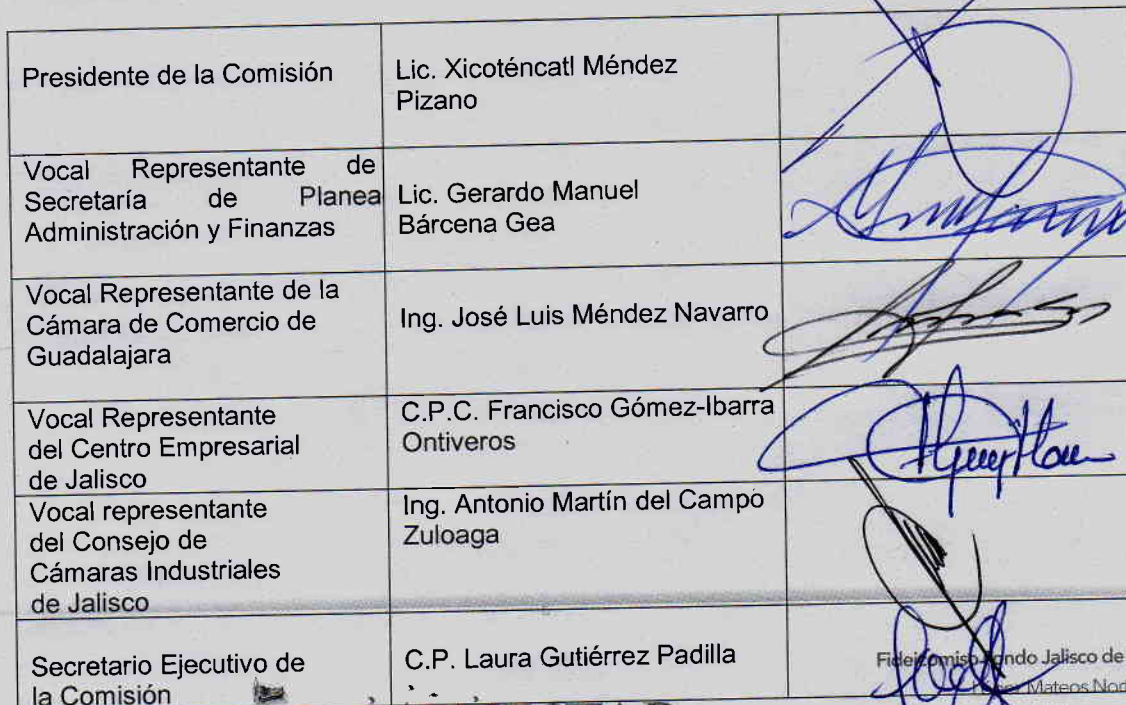 Presidente de la Comisión
Lic. Xicoténcatl Méndez
Pizano
Vocal Representante de
Secretaría de Planea
Administración y Finanzas
Lic. Gerardo Manuel
Bárcena Gea
Vocal Representante de la
Cámara de Comercio de
Guadalajara
Ing. José Luis Méndez Navarro
Vocal Representante
del Centro Empresarial
de Jalisco
C.P.C. Francisco Gómez-Ibarra
Ontiveros
Vocal representante
del Consejo de
Cámaras Industriales
de Jalisco
Ing. Antonio Martín del Campo
Zuloaga
Secretario Ejecutivo de
la Comisión
C.P. Laura Gutiérrez Padilla
Fideicomiso Fondo Jalisco de
Mateos Nor